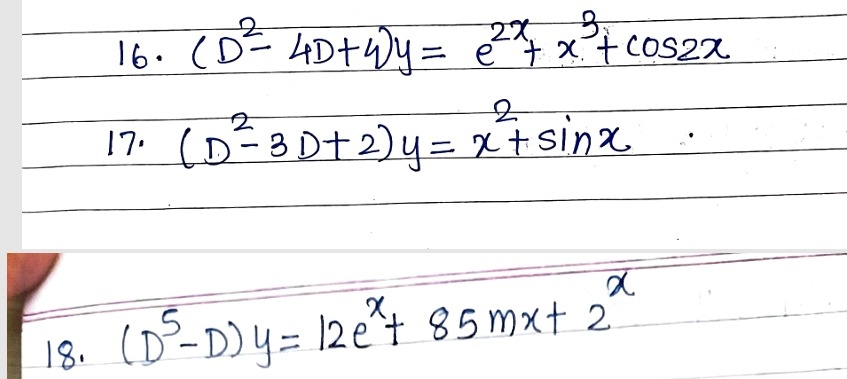 16. (D² - 4D+4)y = e^2x + x³ + cos2x
17. (D² - 3D+2)y = x² + sinx
18. (D⁵ - D)y = 12e^x + 85mx + 2^x